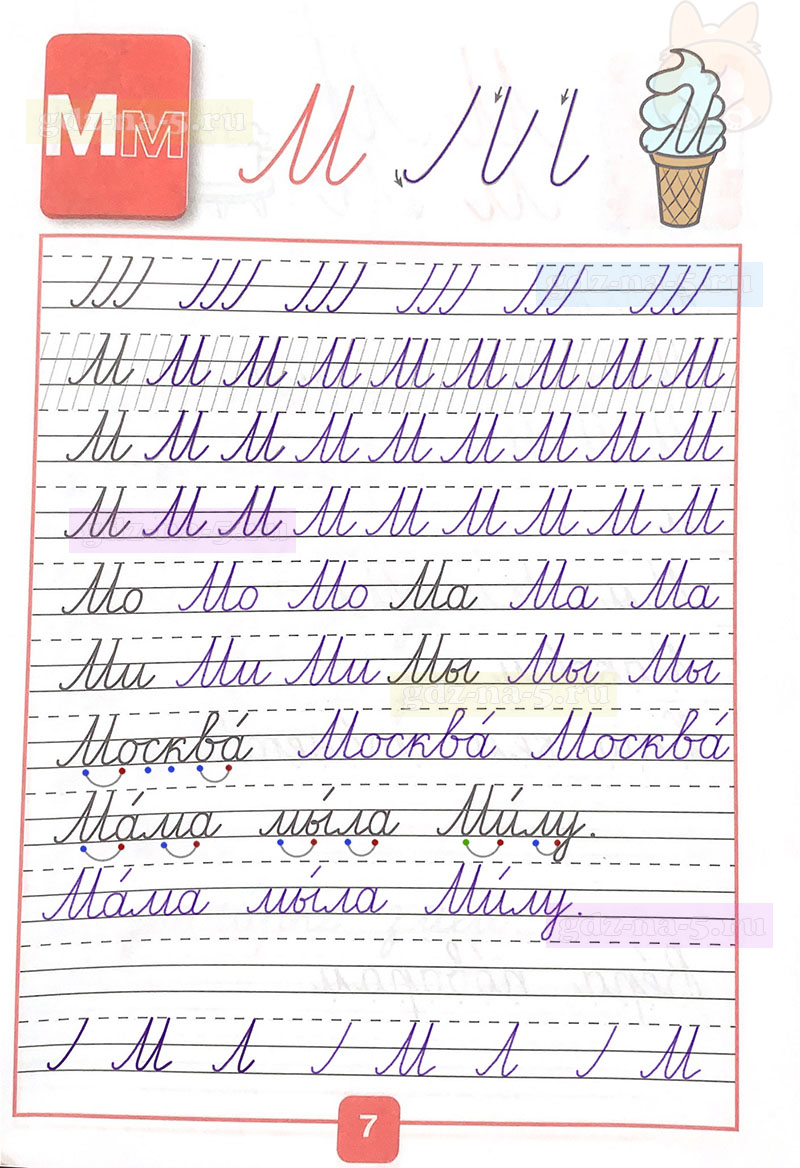 Мм М М
М
М М М М М М М М М
М М М М М М М М М
М М М М М М М М М
Мо Мо Мо Ма Ма Ма
Ми Ми Ми Мы Мы Мы
Москва́ Москва́ Москва́
Ма́ма мы́ла Ми́лу.
Ма́ма мы́ла Ми́лу.
М Л М Л М
7
gdz-na-5.ru
gdz-na-5.ru
gdz-na-5.ru
gdz-na-5.ru
gdz-na-5.ru